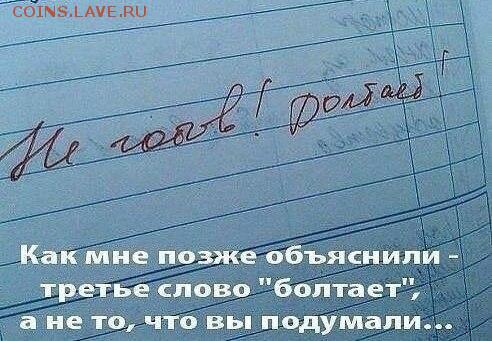 COINS.LAVE.RU
Не готов! Болтает!
Как мне позже объяснили -
третье слово "болтает",
а не то, что вы подумали...